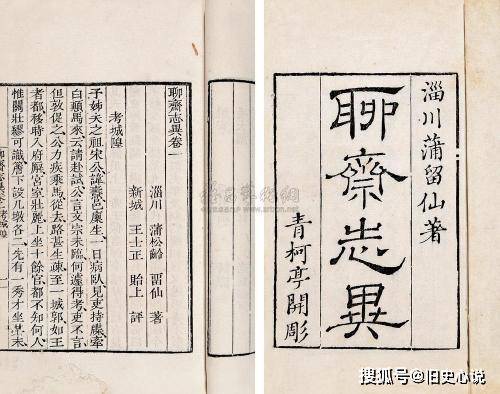 淄川蒲留仙著
聊齋志異
青柯亭開彫
聊齋志異卷一
淄川 蒲松齡 畱仙 著
新城 王士正 貽上 評
考城隍
予姊夫之祖宋公諱燾邑廩生一日病臥見吏持牒牽
白顛馬來云請赴試公言文宗未臨何遽得考吏不言
但敦促之公力疾乘馬從去路甚生疎至一城郭如王
者都移時入府廨宮室壯麗上坐十餘官都不知何人
惟關壯繆可識簷下設几墩各二先有一秀才坐其末
搜狐号@旧史心说